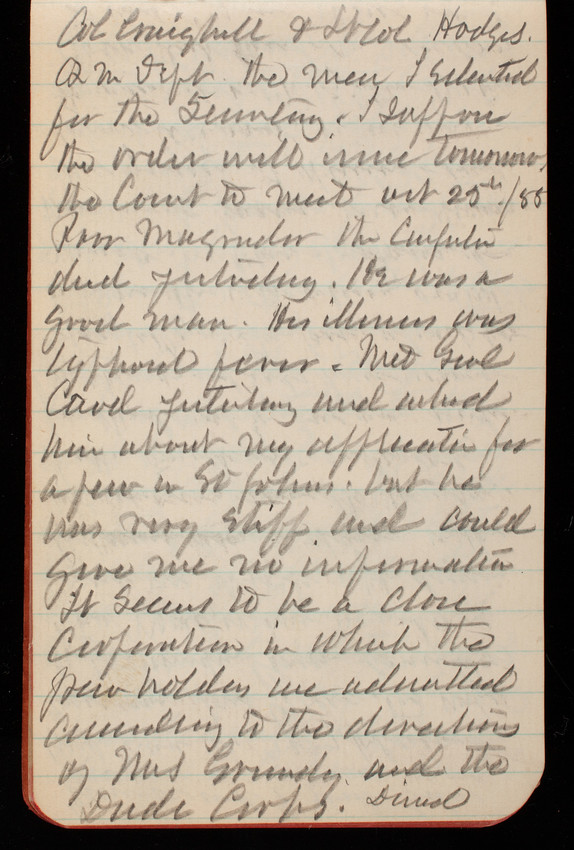 Col Craighill & Lt Col Hodges.
Q M Dept. the men I selected
for the Secretary. I suppose
the order will issue tomorrow,
the Court to meet oct 25th/88
Poor Magruder the Carpenter
died yesterday. He was a
good man. His illness was
typhoid fever. Met Genl
Card yesterday and asked
him about my application for
a pew in St Johns. but he
was very stiff and could
give me no information
It seems to be a close
Corporation in which the
pew holders are admitted
according to the directions
of Mrs Grundy and the
Dude Corps. Dined